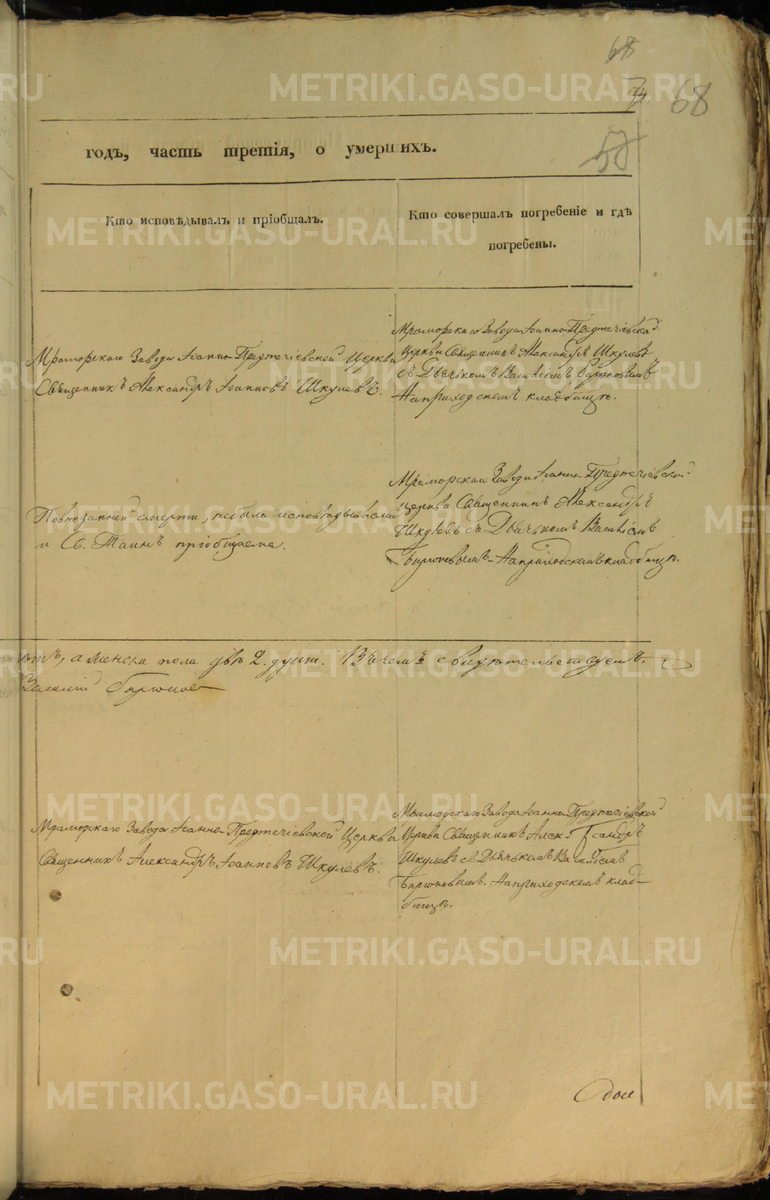 68
68
годъ, часть третія, о умершихъ.
Кто исповѣдывалъ и пріобщалъ.
Кто совершалъ погребеніе и гдѣ
погребены.
Мраморскаго Завода Іоанно-Предтечіевской Церкви
Священникъ Александръ Іоанновъ Шкулевъ.
Мраморскаго Завода Іоанно-Предтечіевской
Церкви Священникъ Александръ Шкулевъ
съ Дьячкомъ Василіемъ Бирюковымъ
На приходскомъ кладбищѣ.
По внезапной смерти, не была исповѣдывана
и Св. Таинъ пріобщаема.
Мраморскаго Завода Іоанно-Предтечіевской
Церкви Священникъ Александръ
Шкулевъ съ Дьячкомъ Василіемъ
Бирюковымъ. На приходскомъ кладбищѣ.
а женска пола двѣ 2. души. Въ чемъ и свидѣтельствуемъ.
Василій Бирюковъ
Мраморскаго Завода Іоанно-Предтечіевской Церкви
Священникъ Александръ Іоанновъ Шкулевъ.
Мраморскаго Завода Іоанно-Предтечіевской
Церкви Священникъ Александръ
Шкулевъ съ Дьячкомъ Василіемъ
Бирюковымъ. На приходскомъ клад-
бищѣ.
METRIKI.GASO-URAL.RU